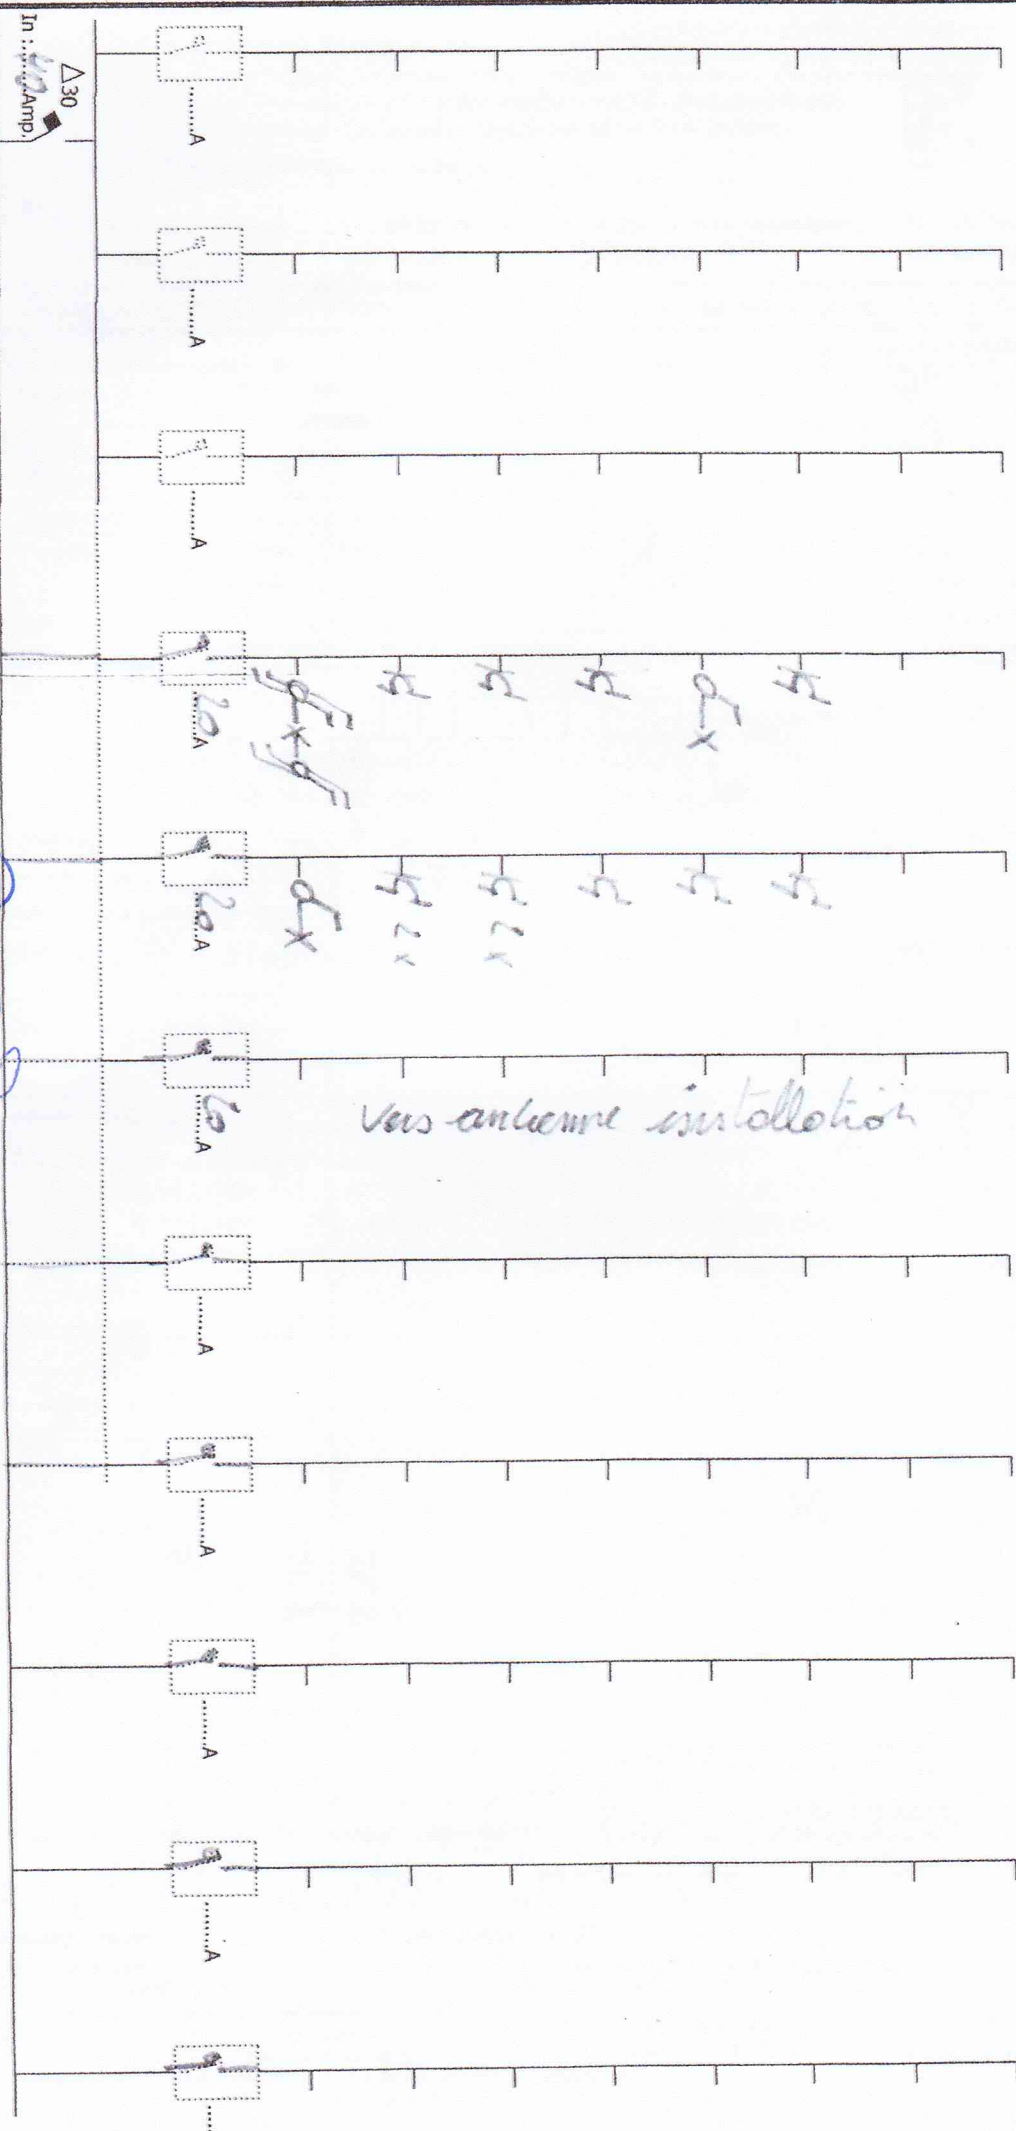 △30
In : 40 Amp.
A
A
A
20 A
20 A
x2
x2
A
Vers ancienne installation
A
A
A
A